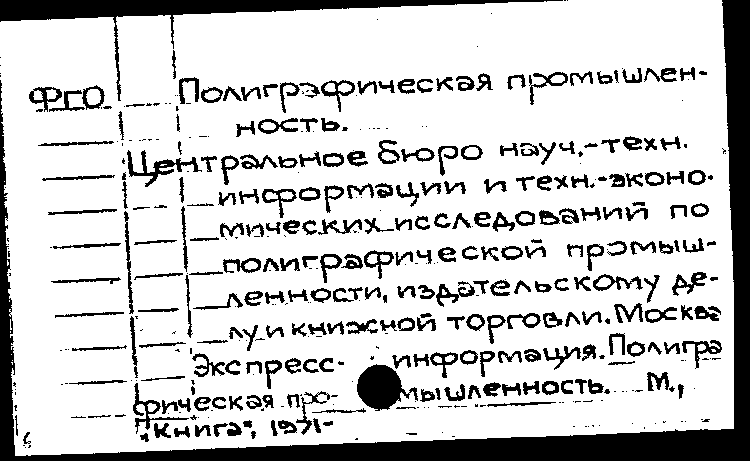 ФГО Полиграфическая промышлен-
ность.
Центральное бюро науч.-техн.
информации и техн.-эконо-
мических исследований по
полиграфической промыш-
ленности, издательскому де-
лу и книжной торговли. Москва
Экспресс-информация. Полигра
фическая промышленность. М.,
"Книга", 1971-